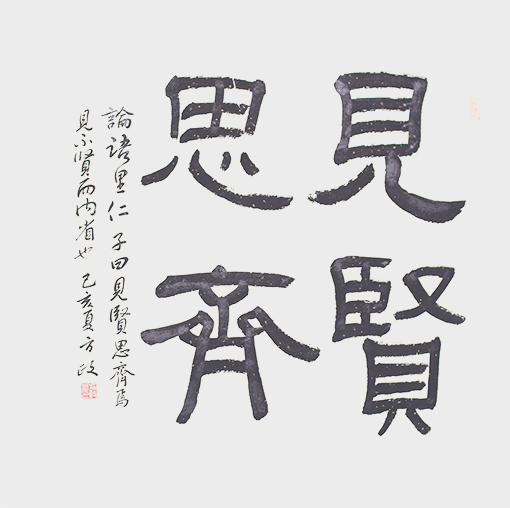 見賢
思齊
論語里仁子曰見賢思齊焉
見不賢而內省也己亥夏方政